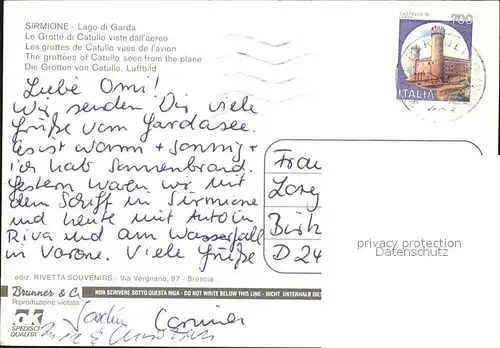 SIRMIONE - Lago di Garda
Le Grotte di Catullo viste dall'aereo
Les grottes de Catullo vues de l'avion
The grottoes of Catullo seen from the plane
Die Grotten von Catullo, Luftbild
CASTELLO DI
700
ITALIA
Liebe Omi!
Wir senden Dir viele
Grüße vom Gardasee.
Es ist warm + sonnig +
ich hab Sonnenbrand.
Gestern waren wir mit
dem Schiff in Sirmione
und heute mit Auto in
Riva und am Wasserfall
in Varone. Viele Grüße
Frau
Birk
D 24
privacy protection
Datenschutz
ediz. RIVETTA SOUVENIRS - Via Vergnano, 97 - Brescia
Brunner & C
Riproduzione vietata
NON SCRIVERE SOTTO QUESTA RIGA - DO NOT WRITE BELOW THIS LINE - NICHT UNTERHALB DIES
ok
SPEDISCI
QUALITÀ